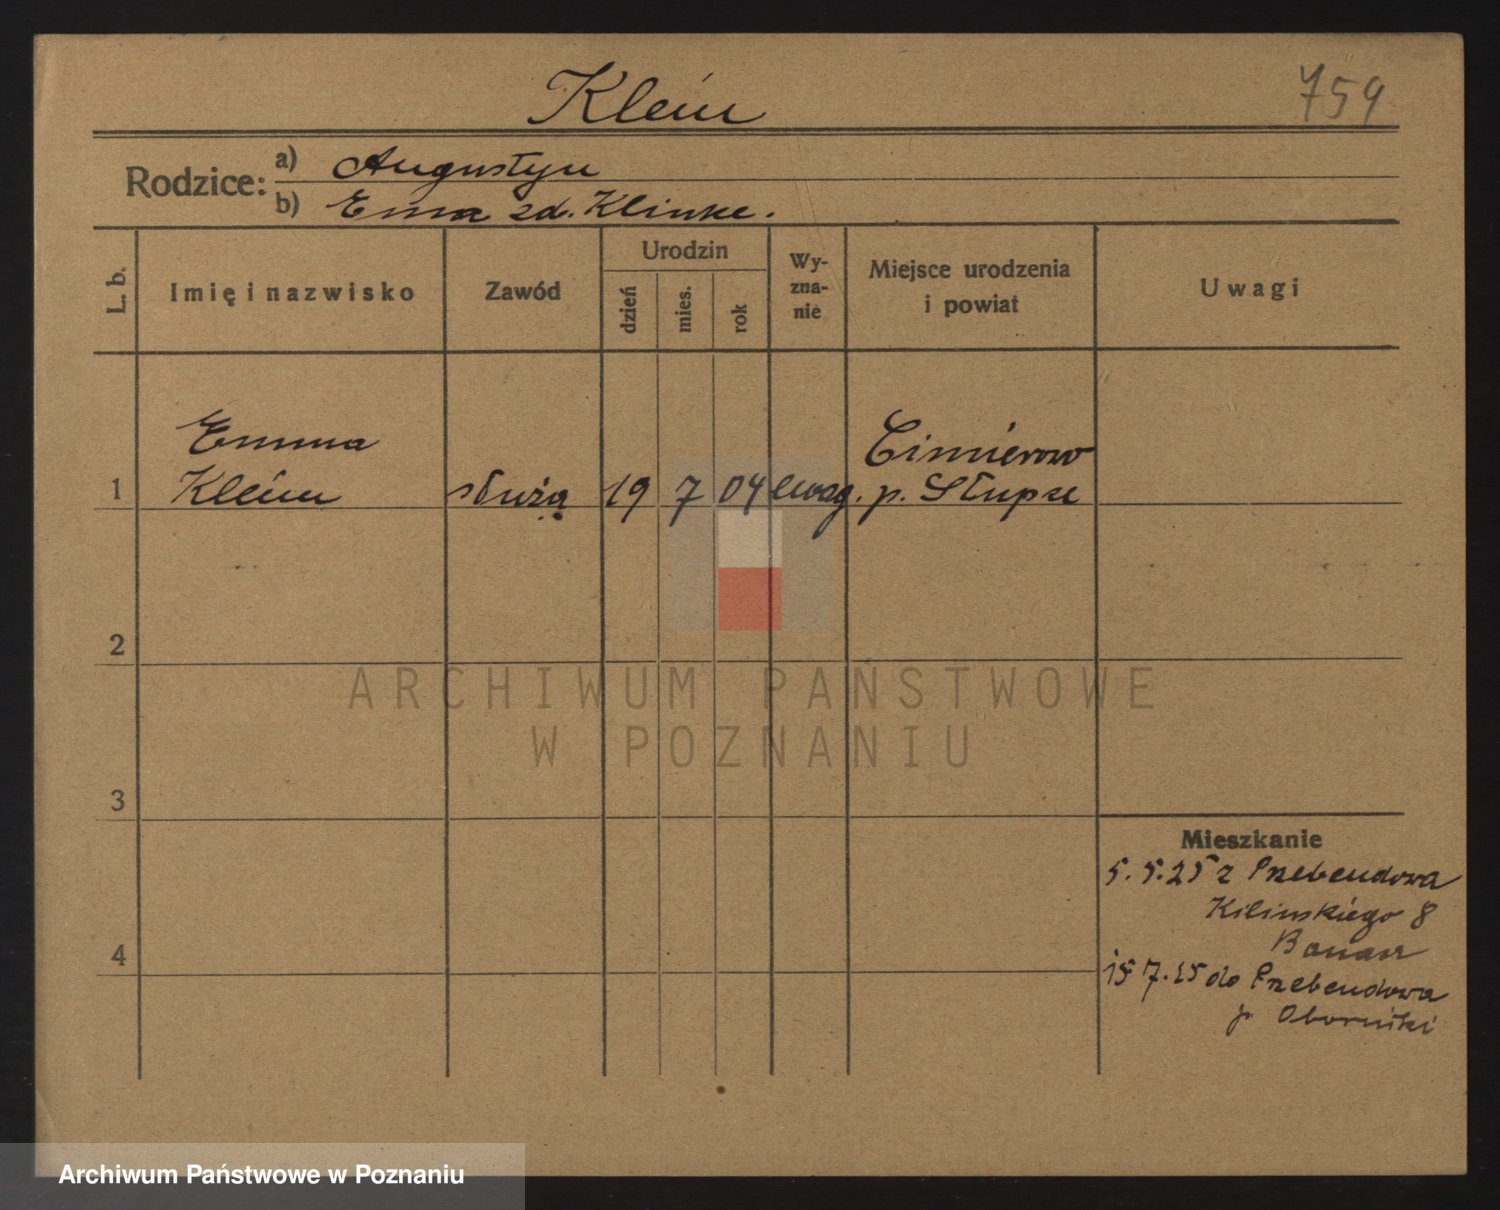 Klein
759
Rodzice:
a) Augustyn
b) Ema zd. Klinke.
L. b.
Imię i nazwisko
Zawód
Urodzin
dzień
mies.
rok
Wy-
zna-
nie
Miejsce urodzenia
i powiat
Uwagi
Emma
Klein
1
służą
19
7
04
ewag.
p. Słupsk
2
ARCHIWUM PAŃSTWOWE
W POZNANIU
3
Mieszkanie
5.5.25 z Przebendowa
Kilinskiego 8
4
15 7.25 do Przebendowa
p. Oborniki
Archiwum Państwowe w Poznaniu